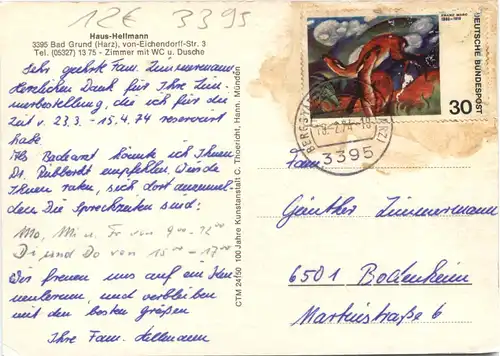 12€ 3395
Haus-Hellmann
3395 Bad Grund (Harz), von-Eichendorff-Str. 3
Tel. (05327) 13 75 - Zimmer mit WC u. Dusche
Sehr geehrte Fam. Zimmermann,
Herzlichen Dank für Ihre Zim-
merbestellung, die ich für die
Zeit v. 23.3. - 15.4.74 reserviert
habe.
Als Badearzt könnte ich Ihnen
Dr. empfehlen. Würde
Ihnen raten, sich dort anzumel-
den. Die Sprechzeiten sind:
Mo, Mi u. Fr von 9°° - 12°°
Di und Do von 15°° - 17°°
Wir freuen uns auf ein Ken-
nenlernen, und verbleiben
mit den besten Grüßen
Ihre Fam. Hellmann
CTM 24150 100 Jahre Kunstanstalt C. Thoericht, Hann. Münden
FRANZ MARC
1880-1916
DEUTSCHE BUNDESPOST
30
3395
Fam.
Günther Zimmermann
6501 Bodenheim
Martinstraße 6